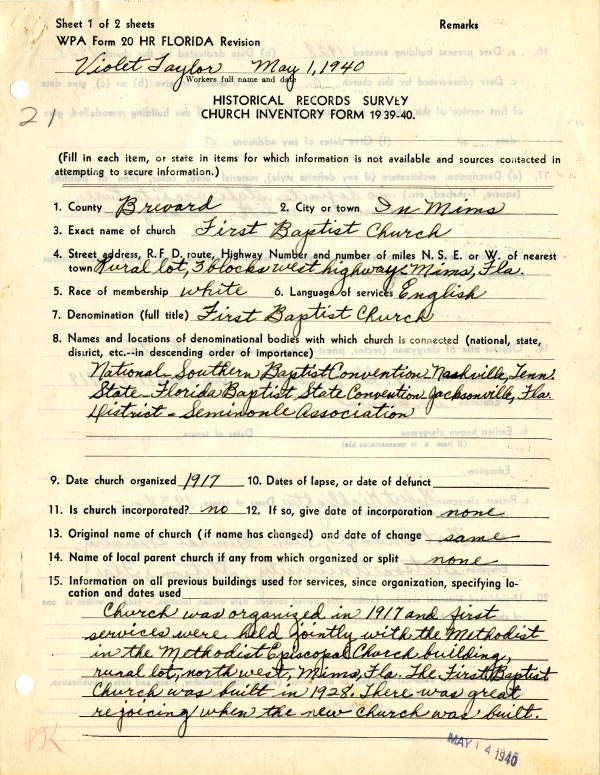 Sheet 1 of 2 sheets
Remarks
WPA Form 20 HR FLORIDA Revision
Violet Taylor May 1, 1940
Workers full name and date
21
HISTORICAL RECORDS SURVEY
CHURCH INVENTORY FORM 1939-40.
(Fill in each item, or state in items for which information is not available and sources contacted in
attempting to secure information.)
1. County Brevard 2. City or town In Mims
3. Exact name of church First Baptist Church
4. Street address, R. F. D. route, Highway Number and number of miles N. S. E. or W. of nearest
town Rural lot, 3 blocks west highway, Mims, Fla.
5. Race of membership white 6. Language of services English
7. Denomination (full title) First Baptist Church
8. Names and locations of denominational bodies with which church is connected (national, state,
district, etc.--in descending order of importance)
National - Southern Baptist Convention - Nashville, Tenn.
State - Florida Baptist State Convention Jacksonville, Fla.
District - Seminonle Association
9. Date church organized 1917 10. Dates of lapse, or date of defunct
11. Is church incorporated? no 12. If so, give date of incorporation none
13. Original name of church (if name has changed) and date of change same
14. Name of local parent church if any from which organized or split none
15. Information on all previous buildings used for services, since organization, specifying lo-
cation and dates used
Church was organized in 1917 and first
services were held jointly with the Methodist
in the Methodist Episcopal Church building,
rural lot, north west, Mims, Fla. The First Baptist
Church was built in 1928. There was great
rejoicing when the new church was built.
PK
MAY 14 1940
1940